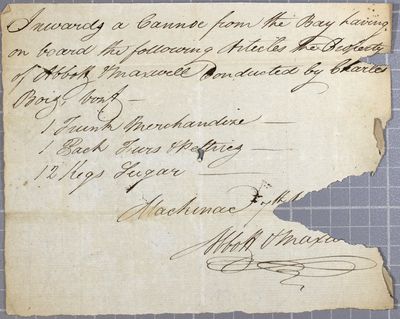 Inwards a Cannoe from the Bay having
on board the following Articles the Property
of Abbott & Maxwell Conducted by Charles
Bois vert —
1 Trunk Merchandize —
1 Pack Furs & Peltries —
12 Kegs Sugar —
Mackinac 7th
Abbott & Maxw